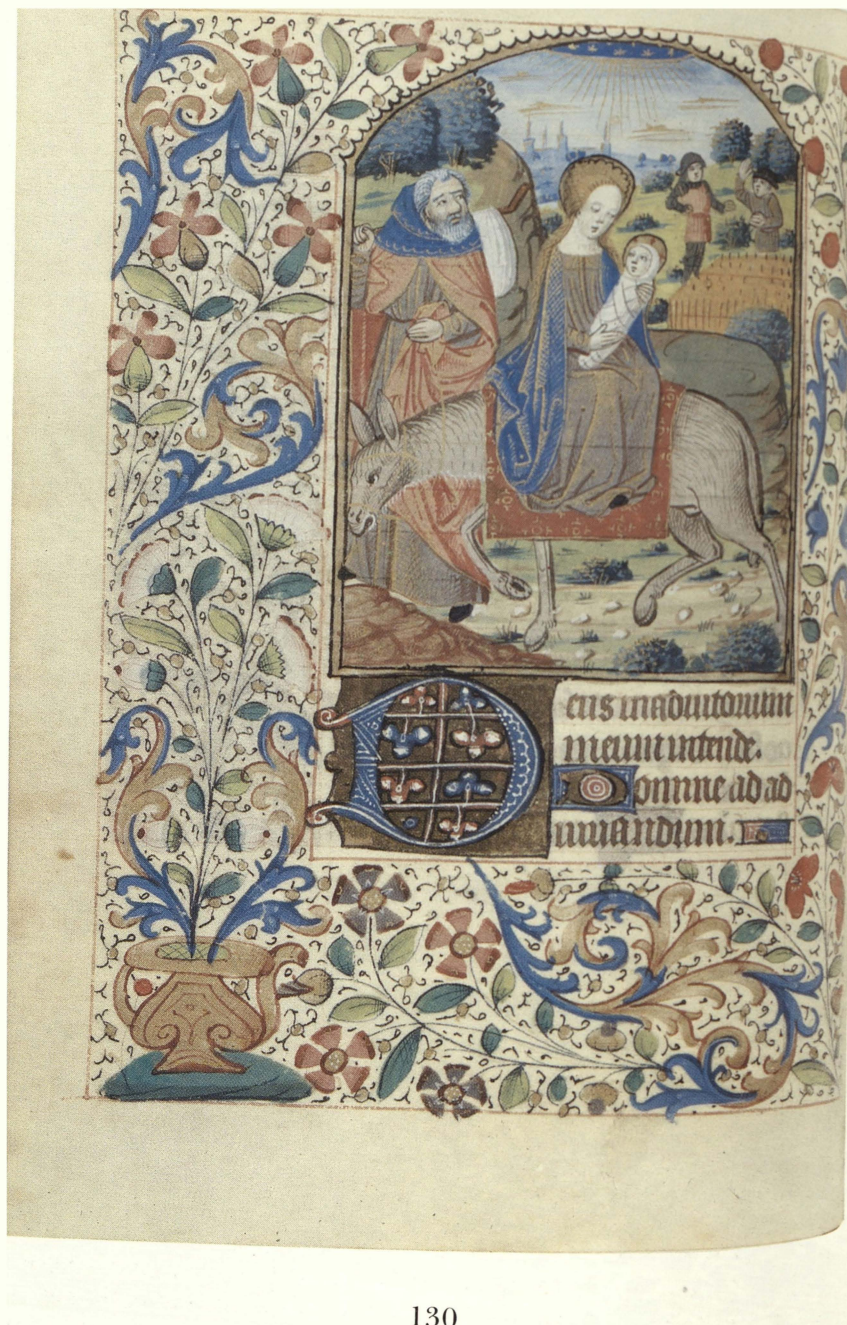 Deus in adiutorium
meum intende.
Domine ad ad
iuuandum.
130